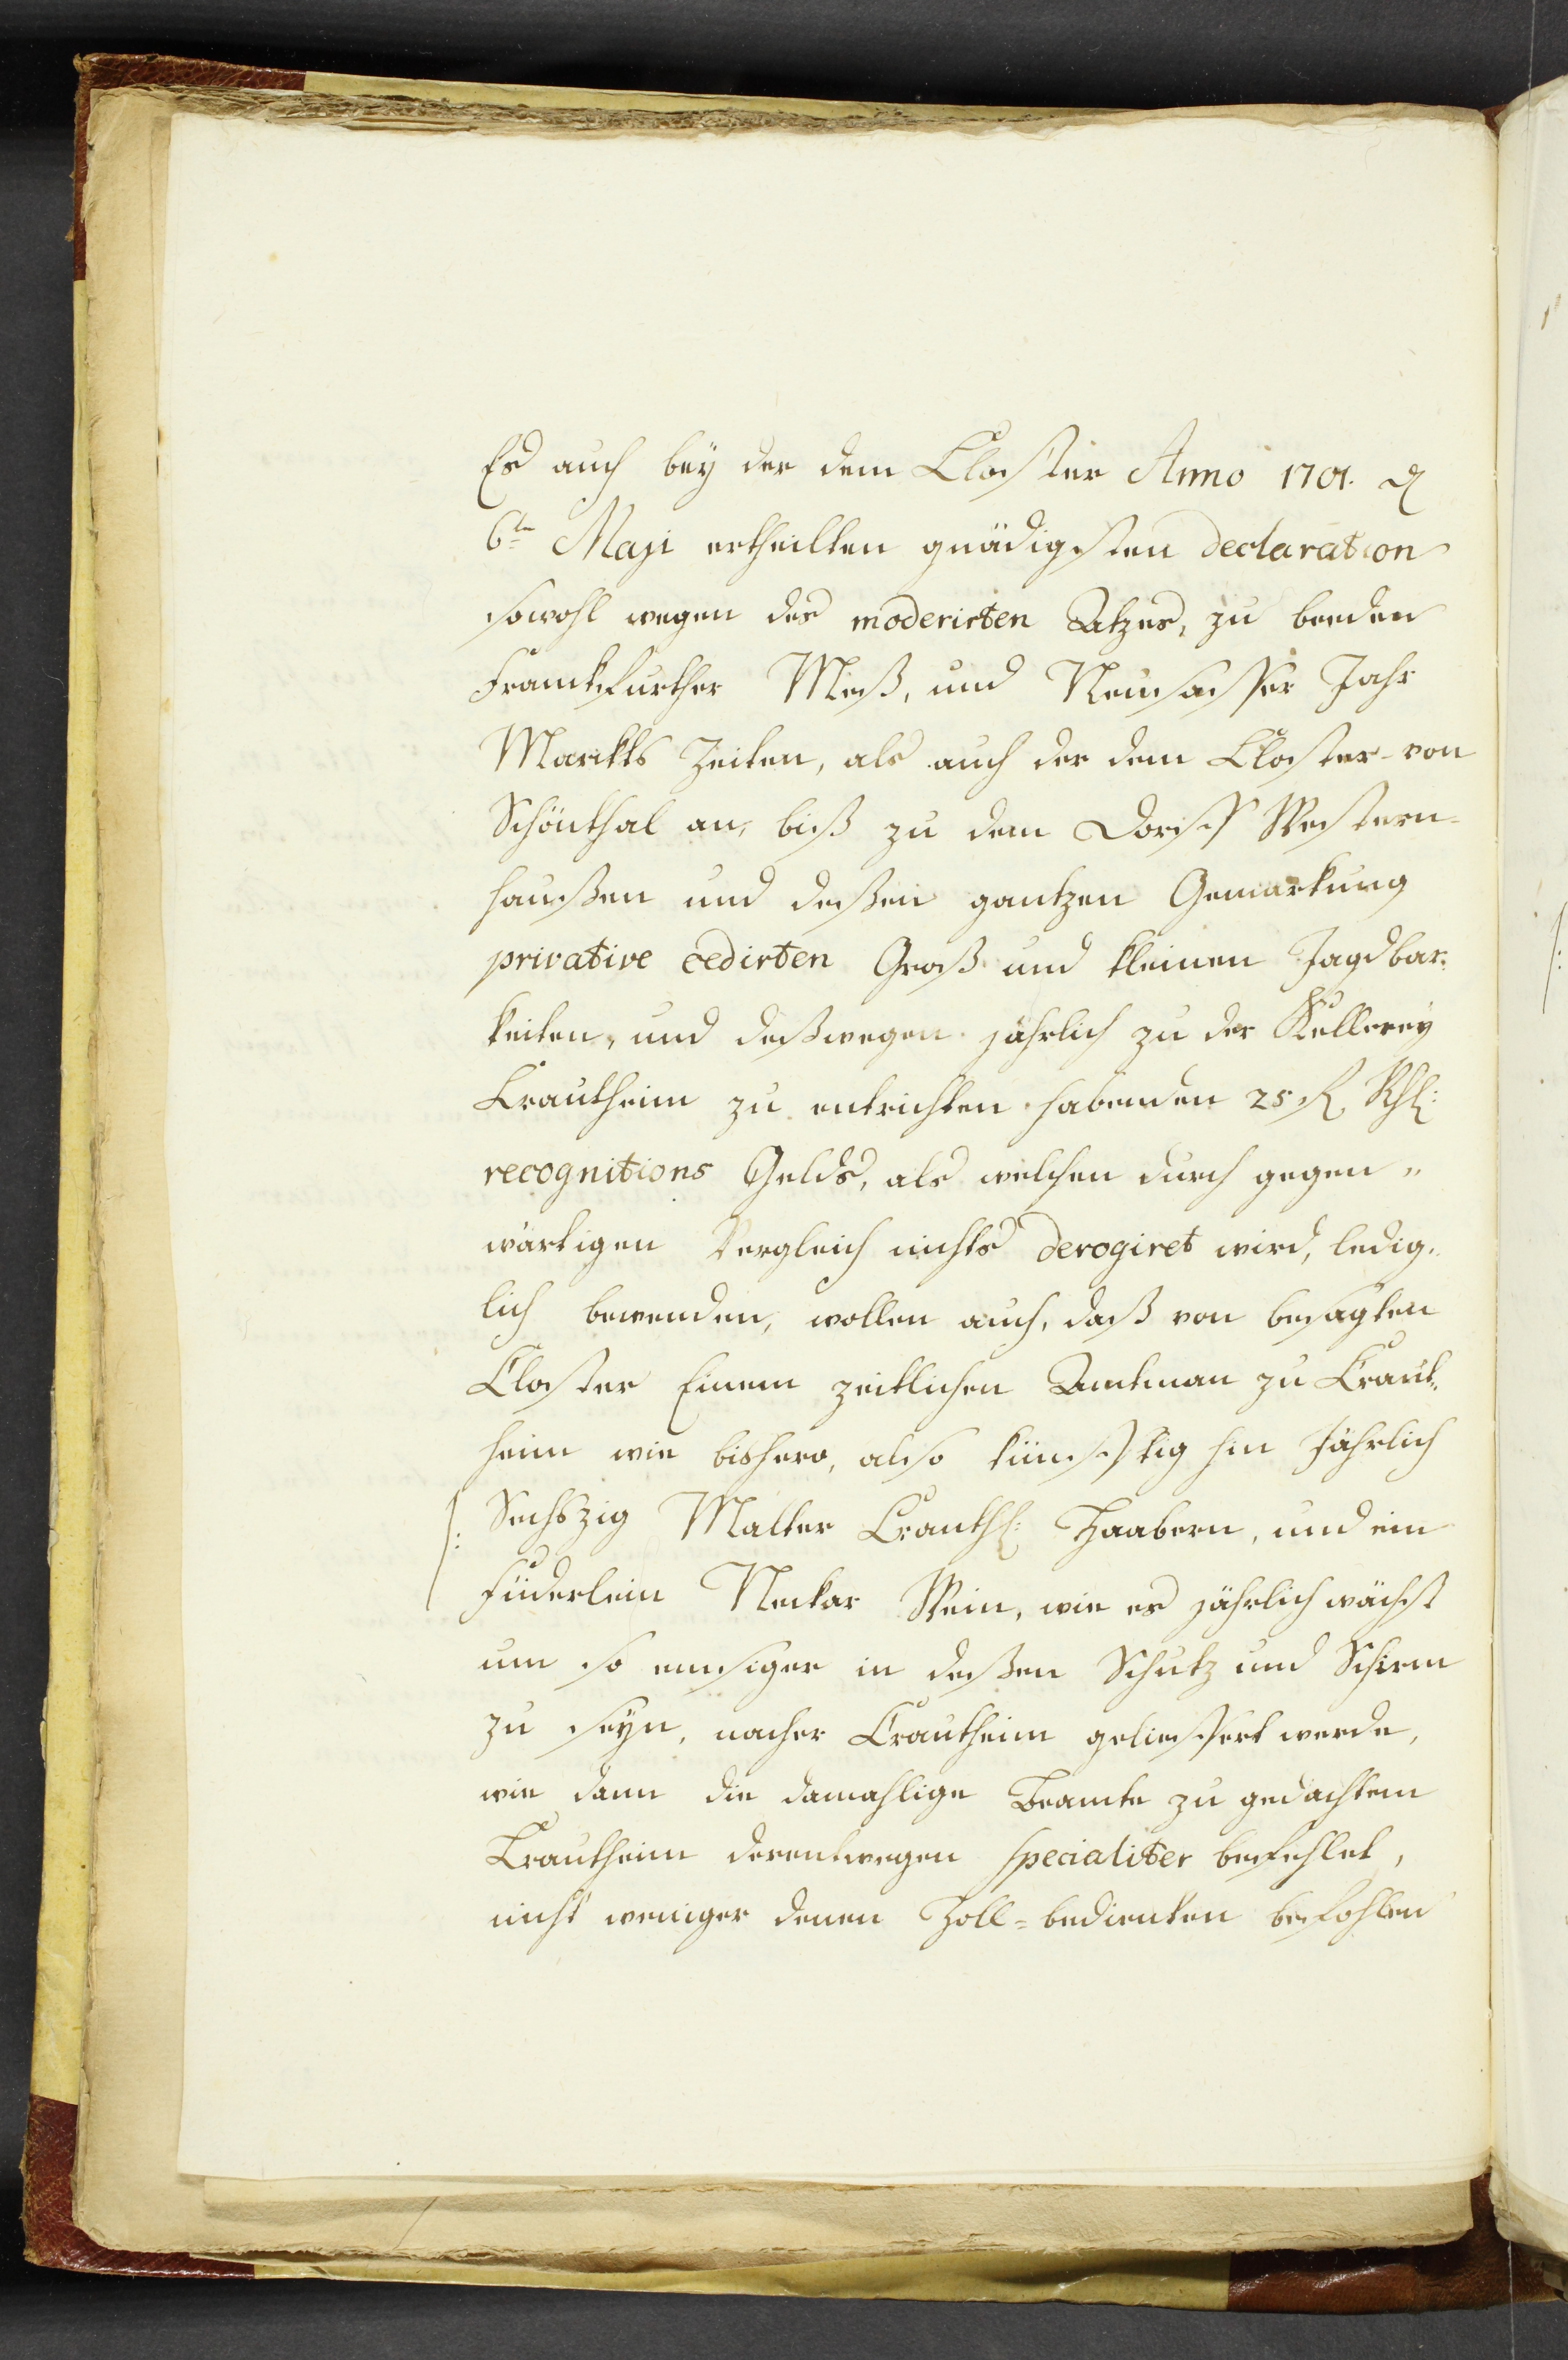 Es auch bey der dem Closter Anno 1701. d
6ten Maji ertheilten gnädigsten declaration
sowohl wegen des moderirten Atzes, zu beeden
Franckfurther Meß, und Neusasser Jahr
Marckts Zeiten, als auch der dem Closter von
Schönthal an, biß zu dem Dorff Western-
haußen und deßen gantzen Gemarkung
privative cedirten Groß und kleinen Jagdbar-
keiten, und deßwegen jährlich zu der Kellerey
Crautheim zu entrichten habenden 25 fl Rhl:
recognitions Gelds, als welchen durch gegen„
wärtigen Vergleich nichts derogiret wird, ledig„
lich bewenden, wollen auch, daß von besagten
Closter Einem zeitlichen Amtman zu Craut„
heim wie bishero, also künfftig hin Jährlich
/: Sechszig Malter Crauthl: Haabern, und ein
Füderlein Neckar Wein, wie er jährlich wächst
um so emsiger in deßen Schutz und Schirm
zu seyn, nacher Crautheim geliefert werde,
wie dann die damahlige Beamte zu gedachtem
Crautheim derentwegen specialiter befehlet,
nicht weniger denen Zoll-bedienten befohlen